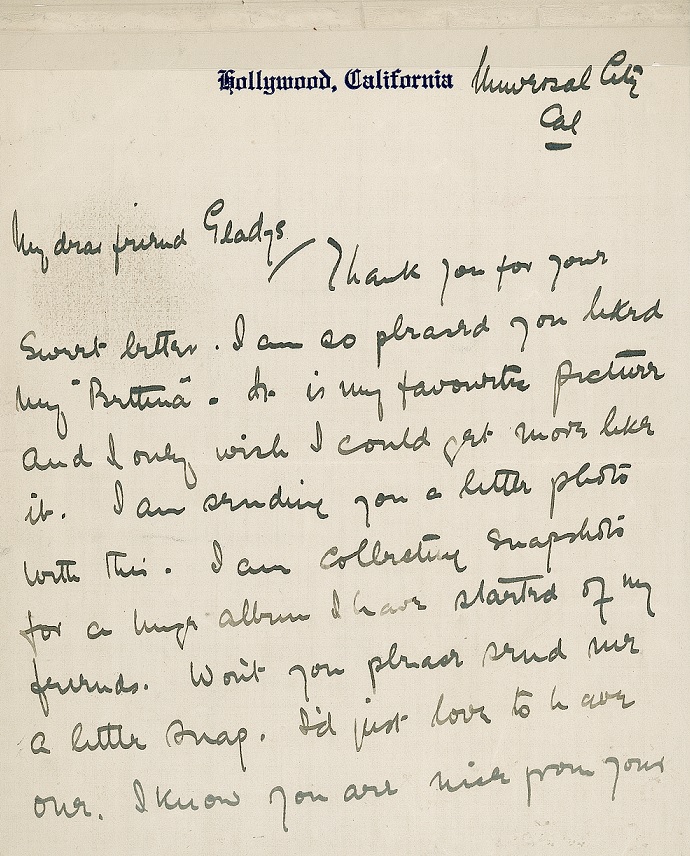 Hollywood, California Universal City
Cal
My dear friend Gladys
Thank you for your
sweet letter. I am so pleased you liked
my "Bettina". It is my favourite picture
and I only wish I could get more like
it. I am sending you a little photo
with this. I am collecting snapshots
for a huge album I have started of my
friends. Won't you please send me
a little snap. I'd just love to have
one. I know you are nice from your